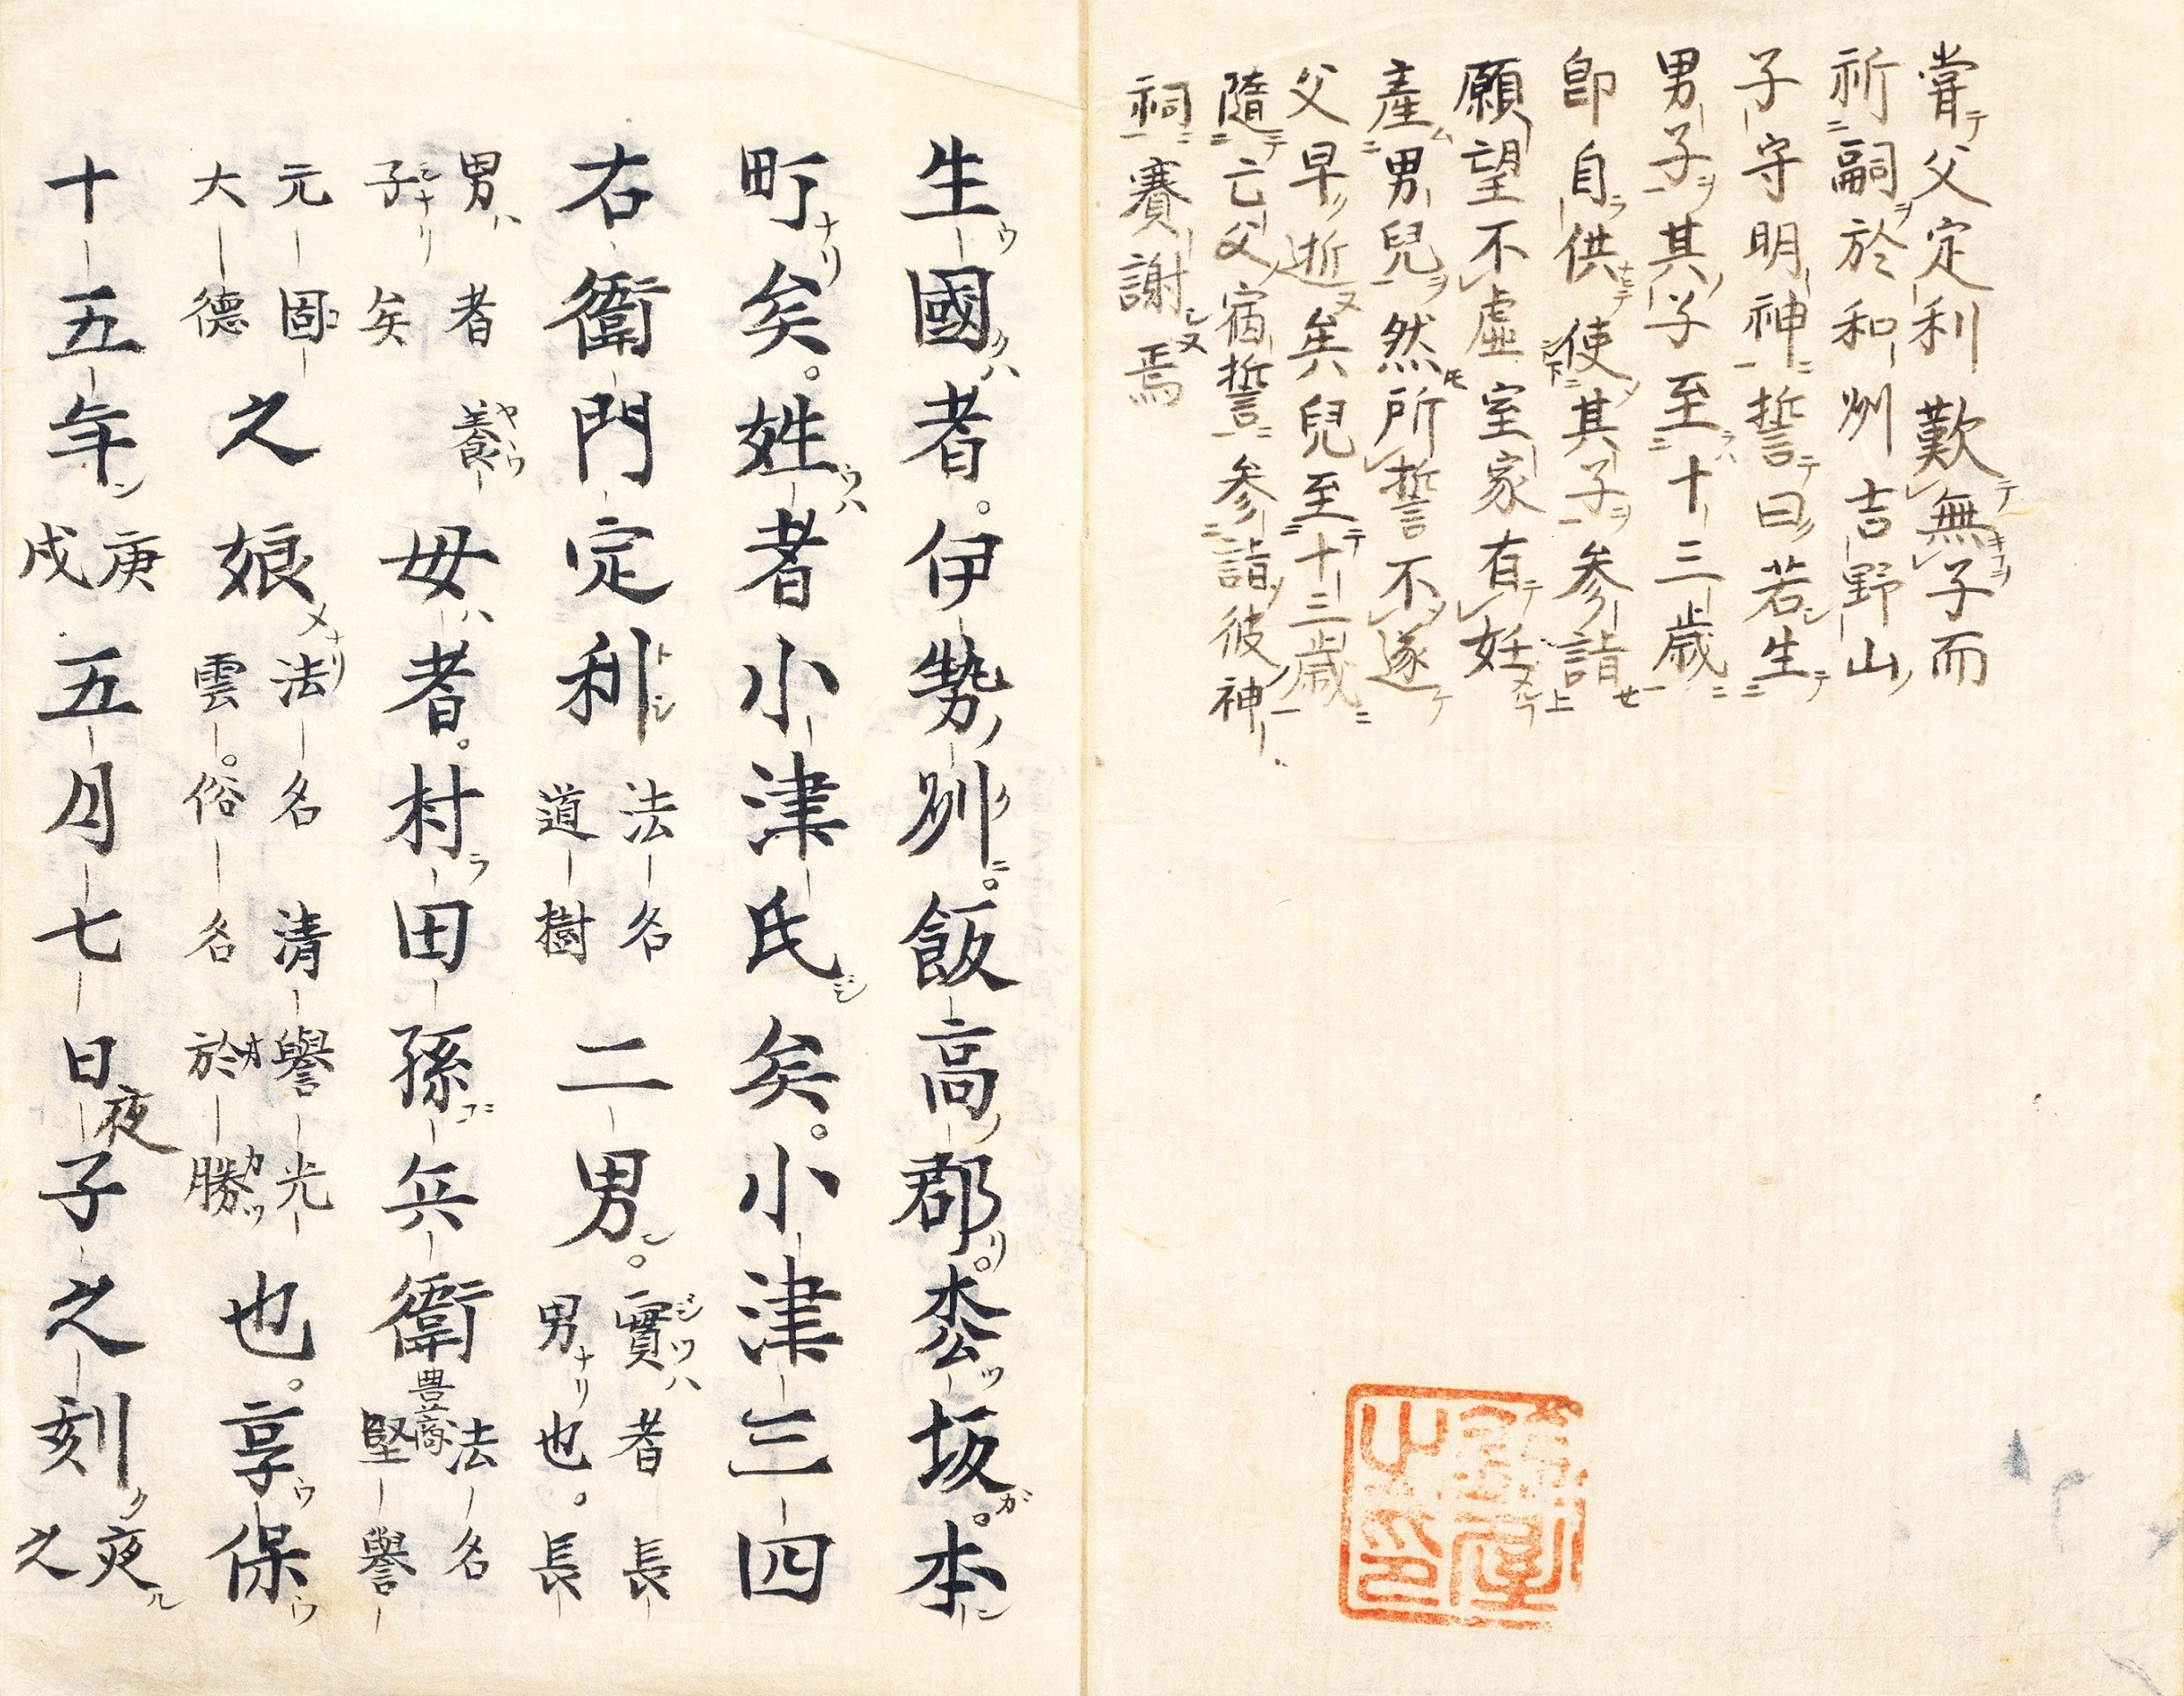 嘗父定利歎無子而
祈嗣於和州吉野山
子守明神誓曰若生
男子其子至十三歳
卽自供使其子参詣
願望不虛室家有妊
產男兒然所誓不遂
父早逝矣兒至十三歳
隨亡父宿誓参詣彼神
祠賽謝焉
生國者。伊勢州。飯高郡。枩坂。本
町矣。姓者小津氏矣。小津三四
右衞門定利法名道樹二男。實者長男也。長
男者養子矣母者。村田孫兵衞豊商法名堅譽
元固大德之娘法名清譽光雲。俗名於勝也。享保
十五年庚戌五月七日夜子之刻夜之